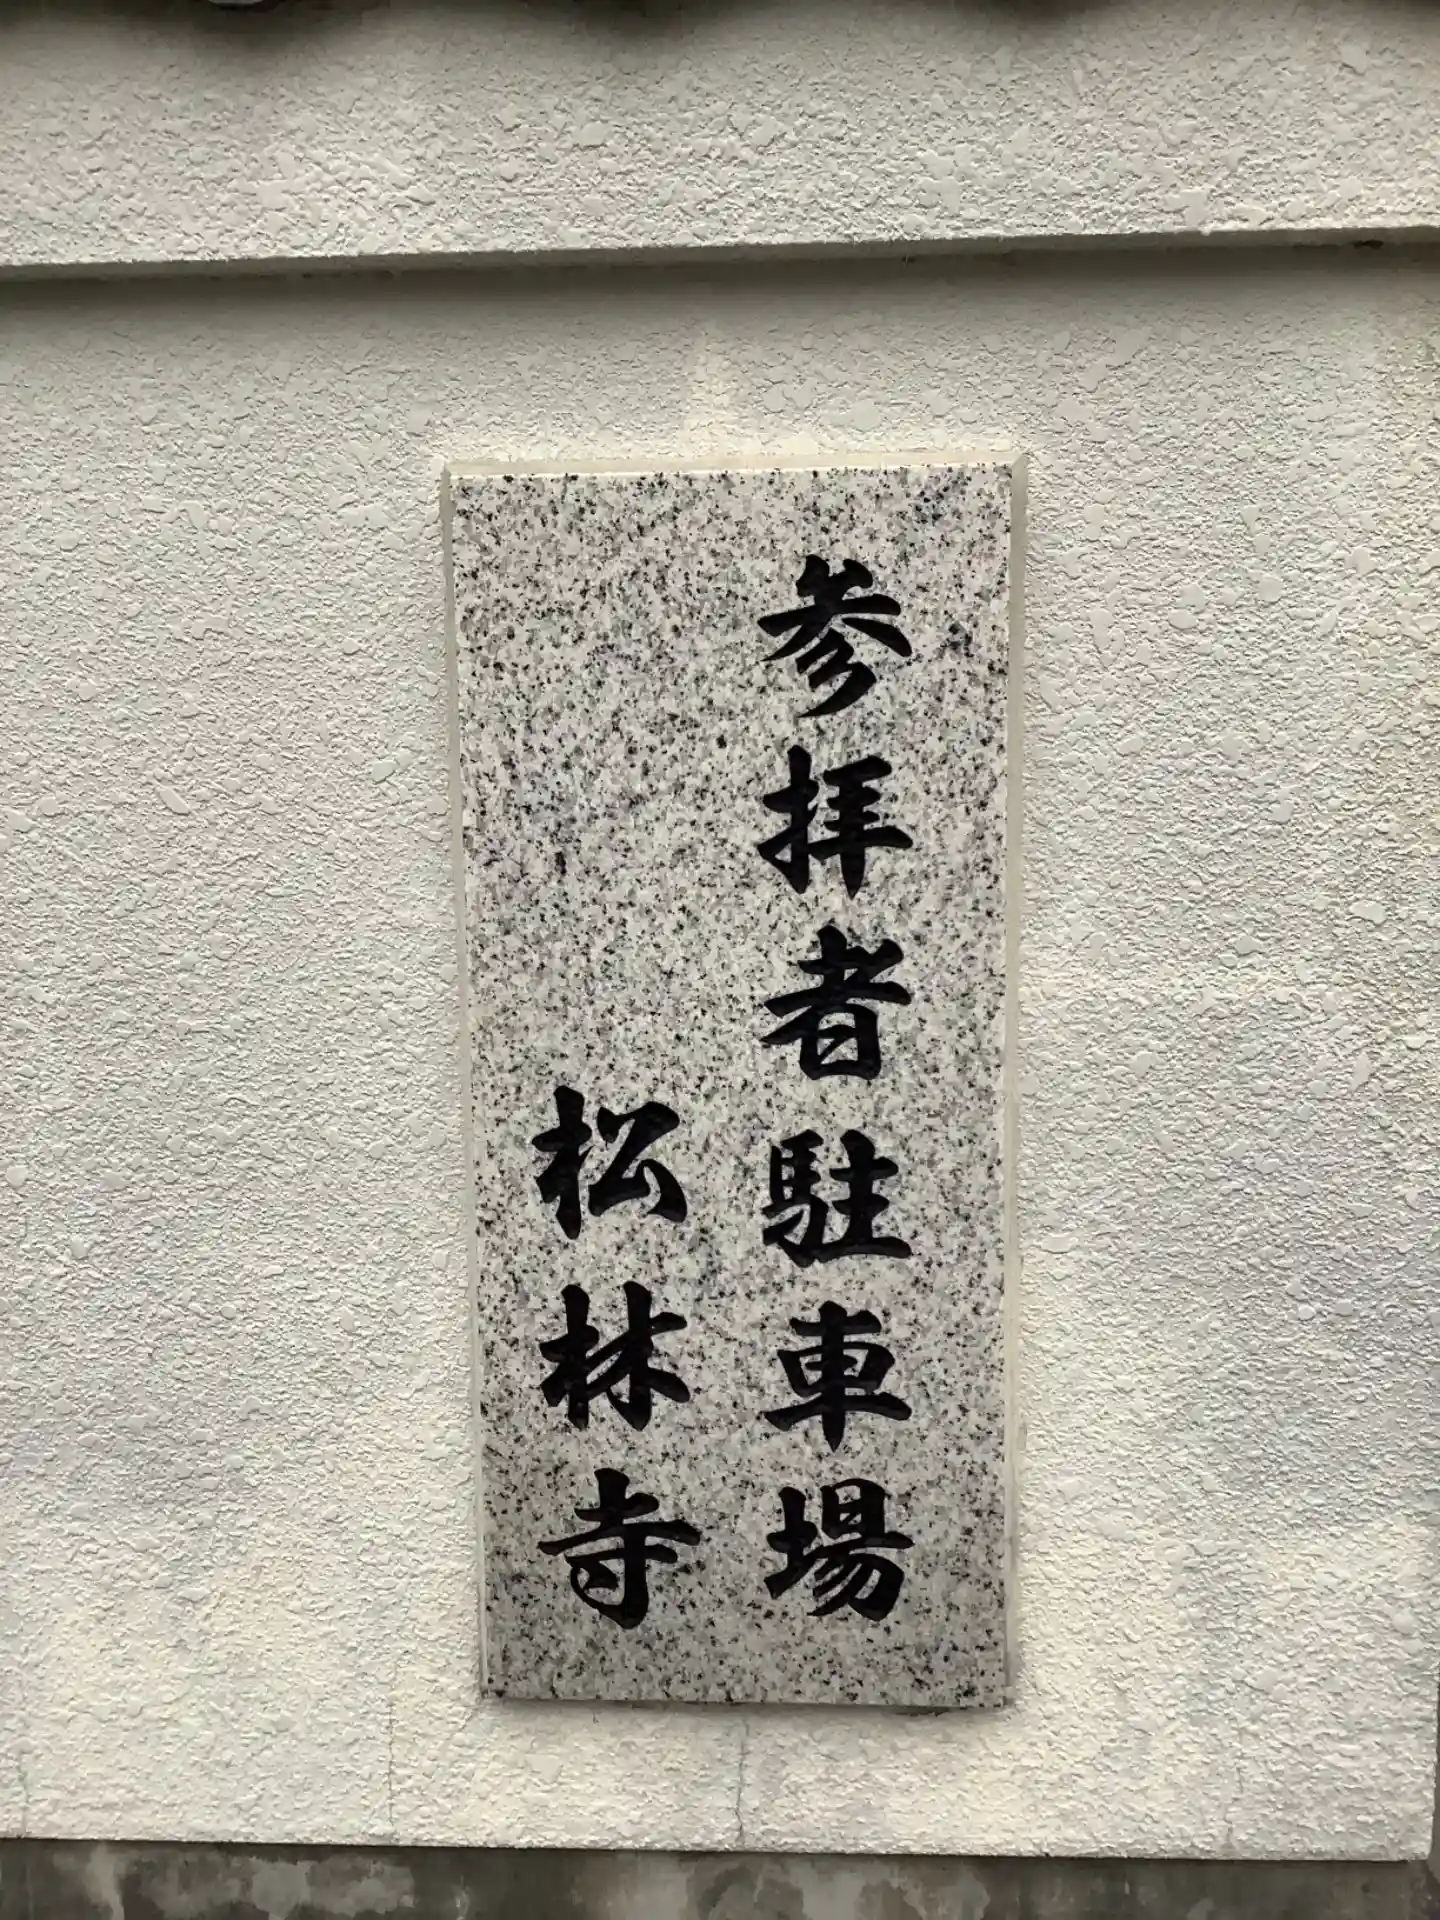 参拝者駐車場
松林寺